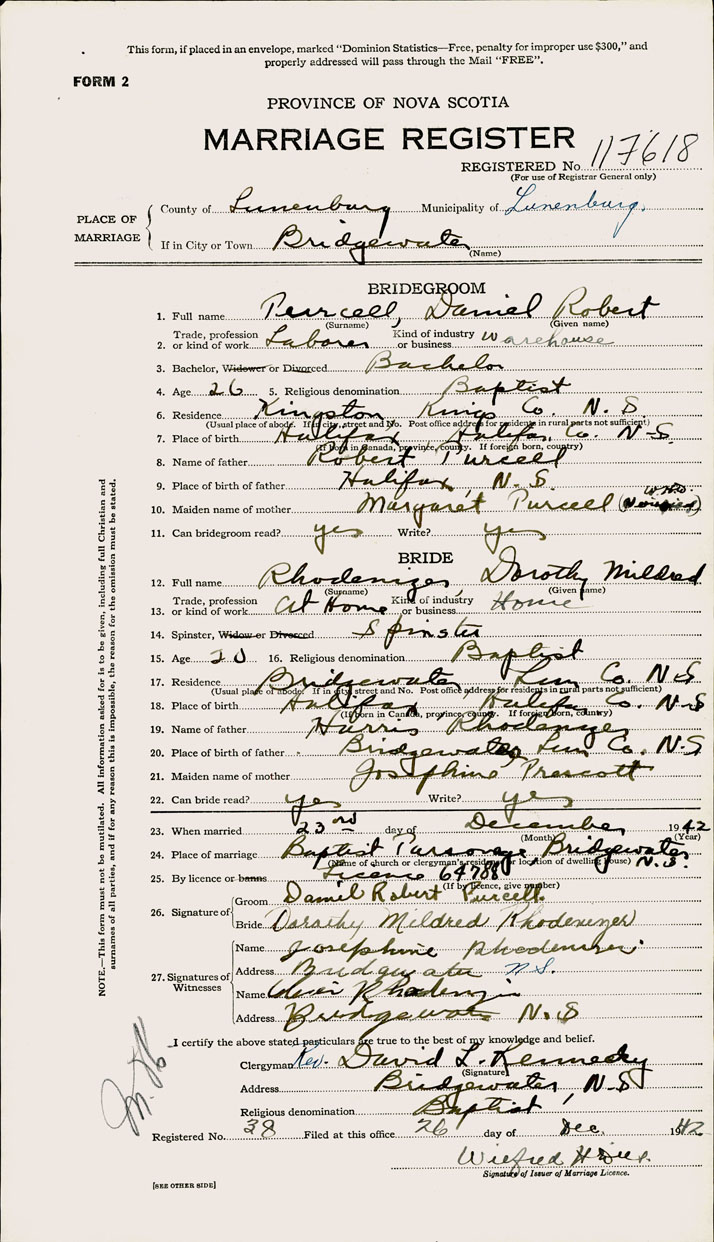 This form, if placed in an envelope, marked "Dominion Statistics—Free, penalty for improper use $300," and
properly addressed will pass through the Mail "FREE".
FORM 2
PROVINCE OF NOVA SCOTIA
MARRIAGE REGISTER
REGISTERED No. 117618
(For use of Registrar General only)
PLACE OF MARRIAGE
County of Lunenburg Municipality of Lunenburg.
If in City or Town Bridgewater
(Name)
BRIDEGROOM
1. Full name Purcell, Daniel Robert
(Surname) (Given name)
2. Trade, profession or kind of work Laborer Kind of industry or business Warehouse
3. Bachelor, Widower or Divorced Bachelor
4. Age 26 5. Religious denomination Baptist
6. Residence Kingston Kings Co. N.S.
(Usual place of abode. If in city, street and No. Post office address for residents in rural parts not sufficient)
7. Place of birth Halifax Halifax Co. N.S.
(If born in Canada, province, county. If foreign born, country)
8. Name of father Robert Purcell
9. Place of birth of father Halifax, N.S.
10. Maiden name of mother Margaret Purcell
11. Can bridegroom read? yes Write? yes
BRIDE
12. Full name Rhodenizer, Dorothy Mildred
(Surname) (Given name)
13. Trade, profession or kind of work At Home Kind of industry or business Home
14. Spinster, Widow or Divorced Spinster
15. Age 20 16. Religious denomination Baptist
17. Residence Bridgewater Lun Co. N.S
(Usual place of abode. If in city, street and No. Post office address for residents in rural parts not sufficient)
18. Place of birth Halifax, Halifax Co. N.S
(If born in Canada, province, county. If foreign born, country)
19. Name of father Harris Rhodenizer
20. Place of birth of father Bridgewater, Lun Co. N.S
21. Maiden name of mother Josephine Prescott
22. Can bride read? yes Write? yes
23. When married 23rd day of December 1942
(Month) (Year)
24. Place of marriage Baptist Parsonage, Bridgewater N.S.
(Name of church or clergyman's residence or location of dwelling house)
25. By licence or banns Licence 64788
(If by licence, give number)
26. Signature of Groom Daniel Robert Purcell.
Bride Dorothy Mildred Rhodenizer
27. Signatures of Witnesses
Name Josephine Rhodenizer
Address Bridgewater N.S.
Name Rhodenizer
Address Bridgewater N.S
I certify the above stated particulars are true to the best of my knowledge and belief.
Clergyman Rev. David L. Kennedy
(Signature)
Address Bridgewater, N.S
Religious denomination Baptist
Registered No. 38 Filed at this office 26 day of Dec. 1942
Wilfred
Signature of Issuer of Marriage Licence.
[SEE OTHER SIDE]
NOTE.—This form must not be mutilated. All information asked for is to be given, including full Christian and
surnames of all parties, and if for any reason this is impossible, the reason for the omission must be stated.